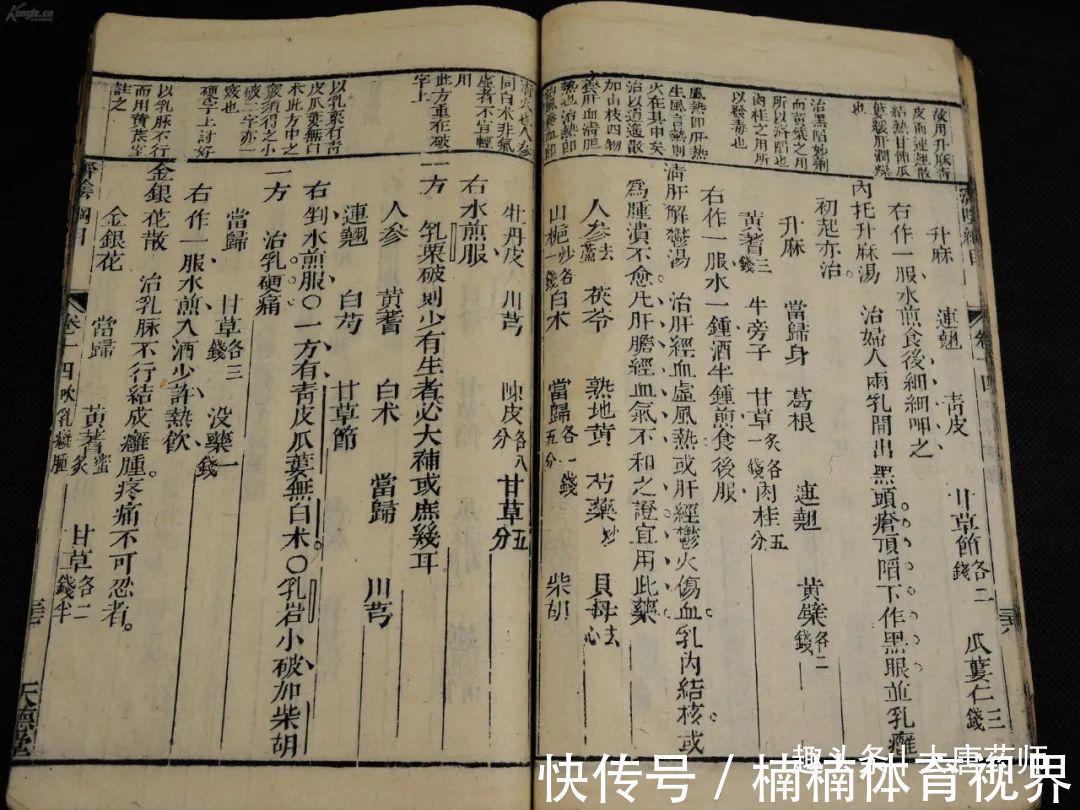 Kongfz.cn
故用升麻青
皮而連翹散
結熱甘節瓜
蔞緩肝潤燥
也
治黑陷妙劑
而黃蘗之用
所以治陷也
肉桂之用所
以發毒也
風熱即肝熱
生風言熱則
火在其中矣
治以逍遙散
加山梔四物
養肝血清胆
熱也治熱即
升麻 連翹 青皮 甘草節各二錢 瓜蔞仁三錢
右作一服水煎食後細細呷之
內托升麻湯 治婦人兩乳間出黑頭瘡頂陷下作黑眼並乳癰
初起亦治
升麻 當歸身 葛根 連翹 黃蘗各二錢
黃蓍三錢 牛旁子 甘草炙各一錢 肉桂五分
右作一服水一鍾酒半鍾煎食後服
清肝解鬱湯 治肝經血虛風熱或肝經鬱火傷血乳內結核或
爲腫潰不愈凡肝膽經血氣不和之證宜用此藥
人參去蘆 茯苓 熟地黃 芍藥炒 貝母去心
山梔炒各一錢 白术 當歸各一錢五分 柴胡
清火也人參
同白术非氣
虛者不宜輕
用
此方重在破
字上
以乳栗有青
皮瓜蔞無白
术此方中之
竅須得之小
破二字亦一
竅也
硬字上討好
以乳脉不行
而用黃蓍宜
註之
牡丹皮 川芎 陳皮各八分 甘草五分
右水煎服
一方 乳栗破則少有生者必大補或庶幾耳
人參 黃蓍 白术 當歸 川芎
連翹 白芍 甘草節
右剉水煎服〇一方有青皮瓜蔞無白术〇乳岩小破加柴胡
一方 治乳硬痛
當歸 甘草各三錢 沒藥一錢
右作一服水煎入酒少許熱飲
金銀花散 治乳脉不行結成癰腫疼痛不可忍者
金銀花 當歸 黃蓍蜜炙 甘草各二錢半
濟陰綱目 卷十四 吹乳癰腫 天德堂
趣头条丨大唐药师
快传号 / 楠楠体育视界